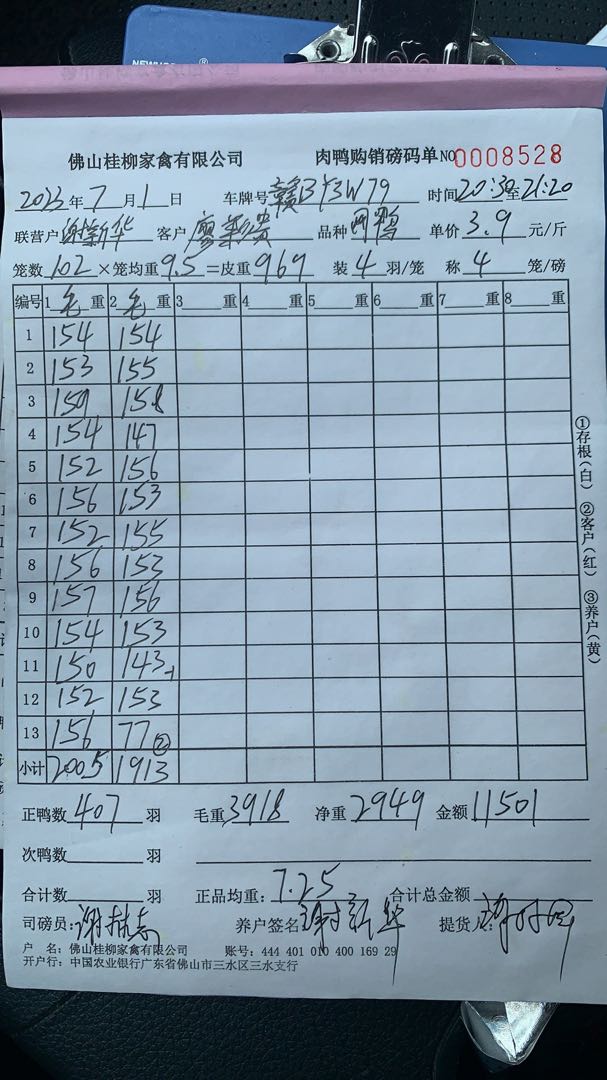 NEWH
佛山桂柳家禽有限公司 肉鸭购销磅码单 NO 0008528
2023年7月1日 车牌号 时间20:30至21:20
联营户谢新华 客户 品种 单价3.9元/斤
笼数102×笼均重9.5=皮重969 装4羽/笼 称4笼/磅
编号 1毛重 2毛重 3重 4重 5重 6重 7重 8重
1 154 154
2 153 155
3 159 158
4 154 147
5 152 156
6 156 153
7 152 155
8 156 153
9 157 156
10 154 153
11 150 143
12 152 153
13 156 77②
小计 2005 1913
①存根(白) ②客户(红) ③养户(黄)
正鸭数407羽 毛重3918 净重2949 金额11501
次鸭数 羽
合计数 羽 正品均重:7.25 合计总金额
司磅员: 养户签名 提货人:
户 名:佛山桂柳家禽有限公司 账号:444 401 010 400 169 29
开户行:中国农业银行广东省佛山市三水区三水支行